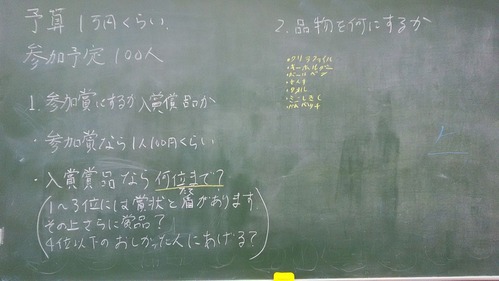 予算 1万円くらい
参加予定 100人
1. 参加賞にするか入賞賞品か
・参加賞なら1人100円くらい
・入賞賞品なら何位まで?
1~3位には賞状と盾があります
たて
その上さらに賞品?
4位以下のおしかった人にあげる?
2. 品物を何にするか
・クリアファイル
・キーホルダー
・ボールペン
・タオル